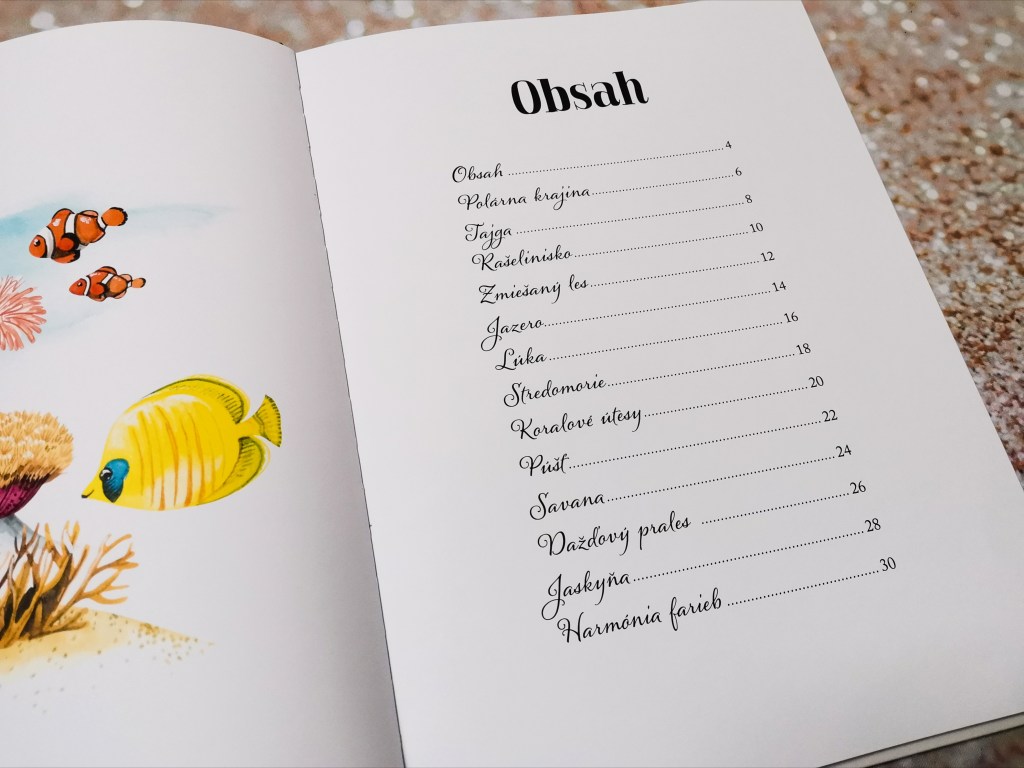 Obsah
Obsah ........ 4
Polárna krajina ........ 6
Tajga ........ 8
Rašelinisko ........ 10
Zmiešaný les ........ 12
Jazero ........ 14
Lúka ........ 16
Stredomorie ........ 18
Koralové útesy ........ 20
Púšť ........ 22
Savana ........ 24
Dažďový prales ........ 26
Jaskyňa ........ 28
Harmónia farieb ........ 30